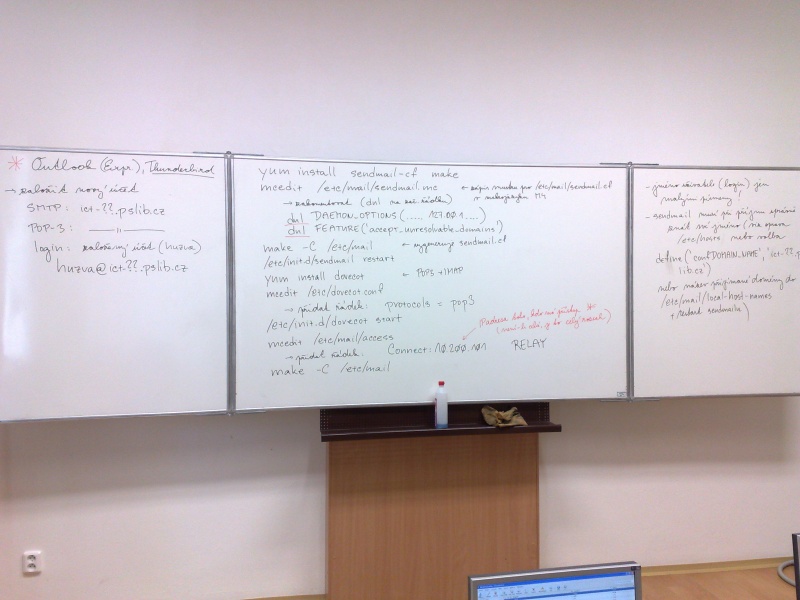 * Outlook (Expr.), Thunderbird
→ založit nový účet
SMTP: ict-??.pslib.cz
POP-3: —— || ——
login: založený účet (huzva)
huzva@ict-??.pslib.cz
yum install sendmail-cf make
mcedit /etc/mail/sendmail.mc ← zápis maker pro /etc/mail/sendmail.cf
→ zakomentovat (dnl na zač. řádku) v makrojazyku M4
dnl DAEMON_OPTIONS(..... 127.0.0.1 ....)
dnl FEATURE('accept_unresolvable_domains')
make -C /etc/mail ← vygeneruje sendmail.cf
/etc/init.d/sendmail restart
yum install dovecot ← POP3 + IMAP
mcedit /etc/dovecot.conf
→ přidat řádek: protocols = pop3
/etc/init.d/dovecot start
mcedit /etc/mail/access
→ přidat řádek: Connect: 10.200.101 RELAY
make -C /etc/mail
- jméno uživatele (login) jen
malými písmeny!
- sendmail musí
znát své jméno (viz
/etc/hosts nebo volba
define('confDOMAIN_NAME', 'ict-??.ps
lib.cz')
nebo název přijímané domény do
/etc/mail/local-host-names
+ restart sendmailu)